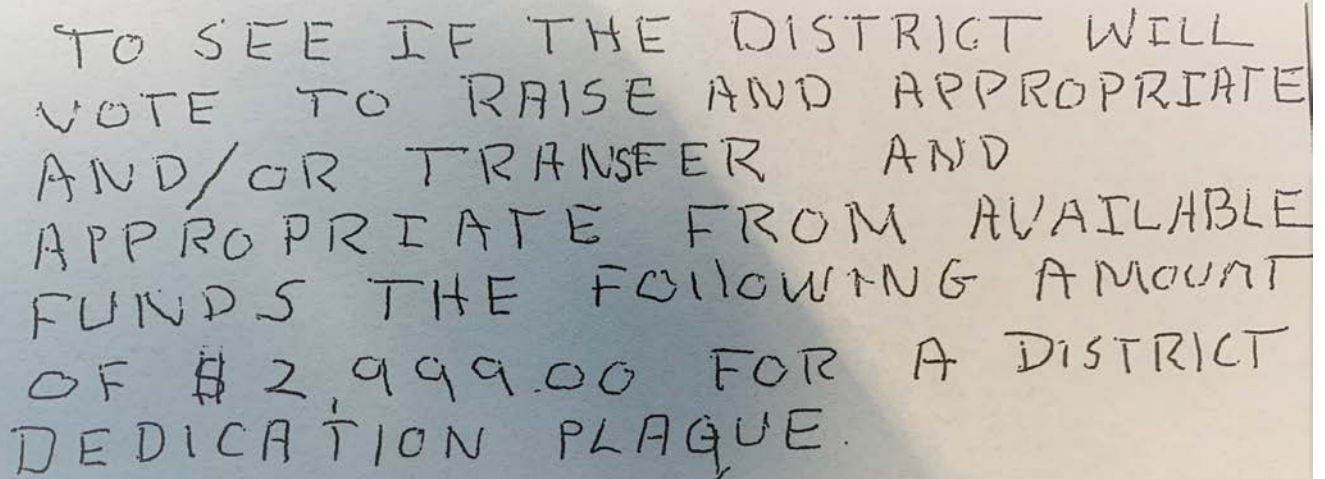 TO SEE IF THE DISTRICT WILL
VOTE TO RAISE AND APPROPRIATE
AND/OR TRANSFER AND
APPROPRIATE FROM AVAILABLE
FUNDS THE FOllOWING AMOUNT
OF $2,999.00 FOR A DISTRICT
DEDICATION PLAQUE.